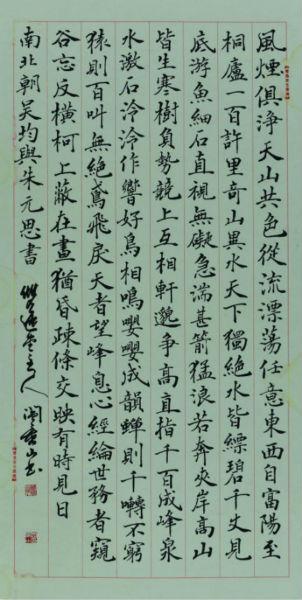 風煙俱淨天山共色從流漂蕩任意東西自富陽至
桐廬一百許里奇山異水天下獨絕水皆縹碧千丈見
底游魚細石直視無礙急湍甚箭猛浪若奔夾岸高山
皆生寒樹負勢競上互相軒邈爭高直指千百成峰泉
水激石泠泠作響好鳥相鳴嚶嚶成韻蟬則千囀不窮
猿則百叫無絕鳶飛戾天者望峰息心經綸世務者窺
谷忘反橫柯上蔽在晝猶昏疎條交映有時見日
南北朝吳均與朱元思書